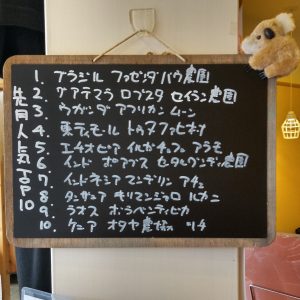 先月人気TOP10
1. ブラジル ファゼンダバウ農園
2. グアテマラ ロブスタ セイラン農園
3. ウガンダ アフリカンムーン
4. 東ティモール トゥヌファヒネナ
5. エチオピア イルガチェフェ アラモ
6. インド ポアブス セタルグンディ農園
7. インドネシア マンデリン アチェ
8. タンザニア キリマンジャロ ルカニ
9. ラオス ボラベンティピカ
10. ケニア オタヤ農協